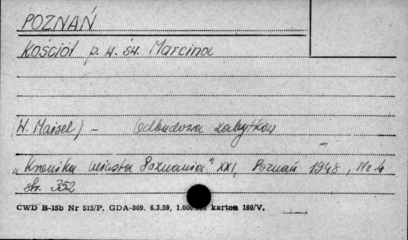 POZNAŃ
Kościół p. w. św. Marcina
(W. Maisel) – Odbudowa zabytków –
„Kronika Miasta Poznania” XXI, Poznań 1948, Nr 4
str. 352
CWD B-15b Nr 515/P. GDA-809. 6.3.59. 1.000.000 karton 180/V.